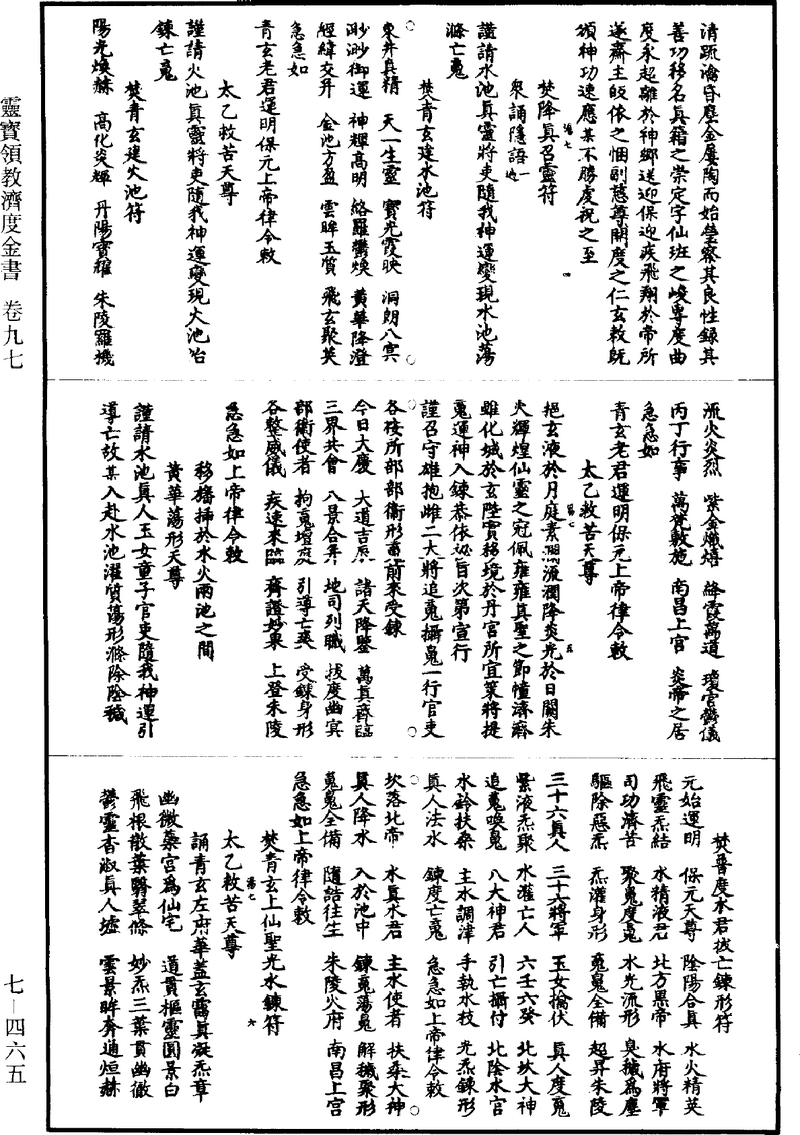 清疏瀹昏塵金屢陶而始瑩察其良性錄其
善功移名眞籍之崇定字仙班之峻專度曲
度永超離於神鄉送迎保迎疾飛翔於帝所
遂齋主皈依之悃副慈尊開度之仁玄教既
頒神功速應某不勝虔祝之至
焚降眞召靈符
眾誦隱語一遍
謹請水池眞靈將吏隨我神運變現水池蕩
滌亡魂
焚青玄建水池符
東井眞精 天一生靈 寶光霞映 洞朗八冥
渺渺御運 神輝高明 絡羅鬱煥 黃華降澄
經緯交升 金池方盈 雲眸玉質 飛玄聚英
急急如
青玄老君運明保元上帝律令敕
太乙救苦天尊
謹請火池眞靈將吏隨我神運變現火池冶
鍊亡魂
焚青玄建火池符
陽光煥赫 高化炎輝 丹陽寶耀 朱陵羅機
流火炎烈 紫金熾熺 絳霞萬道 瓊宮鬱儀
丙丁行事 萬梵敷施 南昌上宮 炎帝之居
急急如
青玄老君運明保元上帝律令敕
太乙救苦天尊
挹玄液於月庭素瀾流潤降炎光於日闕朱
火輝煌仙靈之冠佩雍雍眞聖之節幢濟濟
雖化城於玄陸實移境於丹宮所宜策將提
魂運神入鍊恭依祕旨次第宣行
謹召守雄抱雌二大將追魂攝魄一行官吏
各按所部部衛形神前來受鍊
今日大慶 大道吉辰 諸天降鑒 萬眞齊臨
三界共會 八景合并 地司列職 拔度幽冥
部衛使者 拘魂壇庭 引導亡爽 受鍊身形
各整威儀 疾速來臨 齊證妙果 上登朱陵
急急如上帝律令敕
移旛插於水火兩池之間
黃華蕩形天尊
謹請水池眞人玉女童子官吏隨我神運引
導亡故某入赴水池濯質蕩形滌除陰穢
焚普度水君拔亡鍊形符
元始運明 保元天尊 陰陽合眞 水火精英
飛靈炁結 水精液君 北方黑帝 水府將軍
司功濟苦 聚魂度魂 水光流形 臭穢爲塵
驅除惡炁 炁灌身形 魂魄全備 超昇朱陵
三十六眞人 三十六將軍 玉女擒伏 眞人度魂
紫液炁聚 水灌亡人 六壬六癸 北坎大神
追魂喚魄 八大神君 引亡攝付 北陰水官
水鈴扶桑 主水調津 手執水枝 光炁鍊形
眞人法水 鍊度亡魂 急急如上帝律令敕
坎落北帝 水眞水君 主水使者 扶桑大神
眞人降水 入於池中 鍊魂蕩魄 解穢聚形
魂魄全備 隨誥往生 朱陵火府 南昌上宮
急急如上帝律令敕
焚青玄上仙聖光水鍊符
太乙救苦天尊
誦青玄左府華蓋玄靄眞凝炁章
幽微藥宮爲仙宅 道貫樞靈圓景白
飛根散葉翳翠條 妙炁三葉貫幽徹
鬱靈杳淑眞人墟 雲景眸奔通烜赫
靈寶領教濟度金書 卷九七
七—四六五